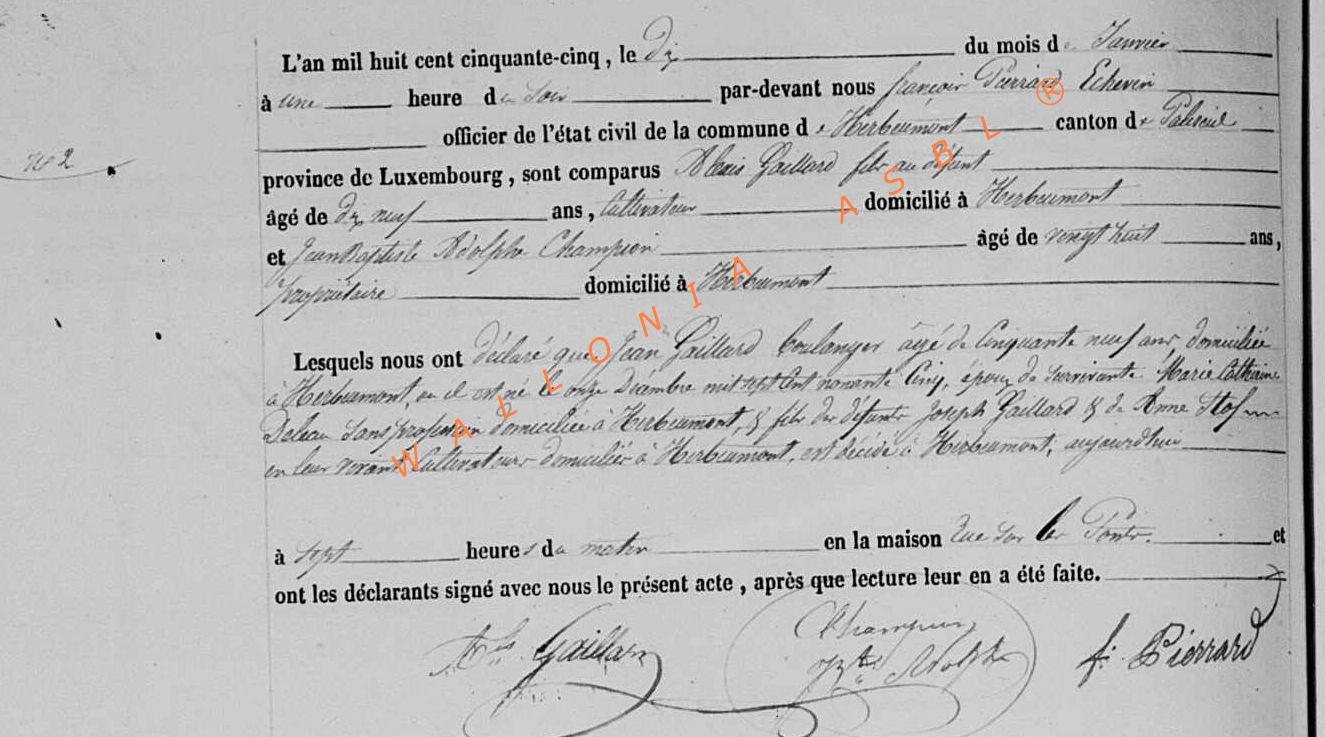 L'an mil huit cent cinquante-cinq, le dix du mois de Janvier
à une heure du soir par-devant nous françois Pierrard Echevin
officier de l'état civil de la commune de Herbeumont canton de Paliseul
N° 2
province de Luxembourg, sont comparus Alexis Gaillard fils au défunt
âgé de dix neuf ans, Cultivateur domicilié à Herbeumont
et Jean Baptiste Adolphe Champion âgé de vingt huit ans,
propriétaire domicilié à Herbeumont
Lesquels nous ont déclaré que Jean Gaillard boulanger âgé de Cinquante neuf ans domicilié
à Herbeumont, où il est né le onze Décembre mil sept cent nonante Cinq, époux de survivante Marie Catherine
Deleau sans profession domiciliée à Herbeumont, & fils des défunts Joseph Gaillard & de Anne
en leur vivant Cultivateurs domiciliés à Herbeumont, est décédé à Herbeumont, aujourdhui
à sept heures du matin en la maison Rue sur les Ponts. et
ont les déclarants signé avec nous le présent acte, après que lecture leur en a été faite.
Als Gaillard
Champion
Jbte Adolphe
f. Pierrard
WALLONIA ASBL ®